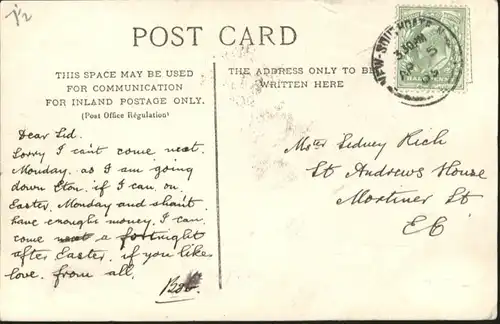 1/2
POST CARD
THIS SPACE MAY BE USED
FOR COMMUNICATION
FOR INLAND POSTAGE ONLY.
(Post Office Regulation)
THE ADDRESS ONLY TO BE
WRITTEN HERE
NEW-SOUTHGATE
3.30PM
AP 5
HALFPENNY
Dear Sid.
Sorry I can't come next.
Monday. as I am going
down Eton. if I can. on.
Easter. Monday and shan't
have enought money. I can.
come next a fortnight
after Easter. if you like
love. from all.
Bob.
Mstr Sidney Rich
St Andrews House
Mortimer St
EC